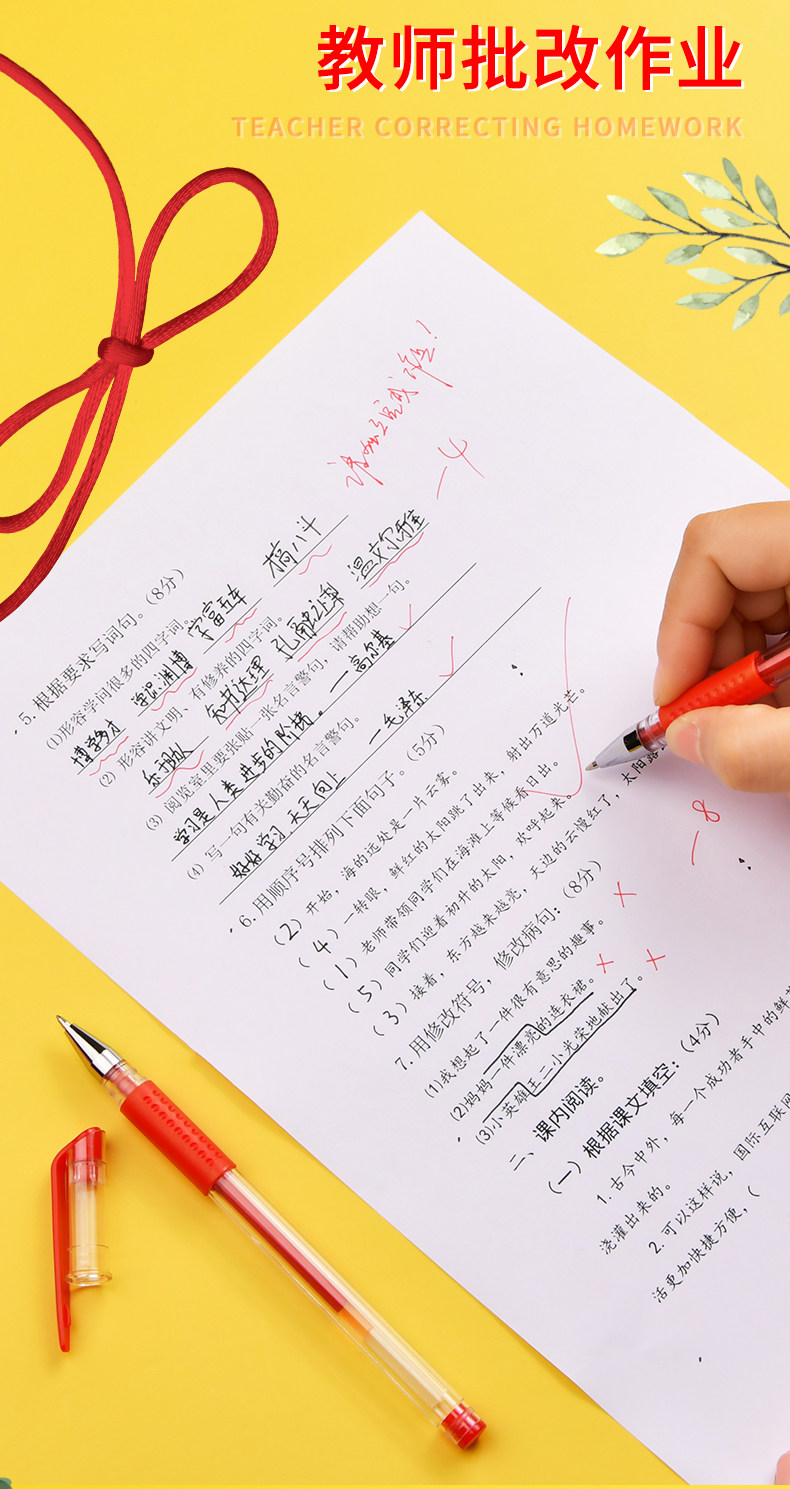 教师批改作业
TEACHER CORRECTING HOMEWORK
-4
5. 根据要求写词句。(8分)
(1)形容学问很多的四字词。
博学多才 学识渊博 学富五车 八斗
(2) 形容讲文明、有修养的四字词。
知书达理 孔融让梨 温文尔雅
(3) 阅览室里要张贴一张名言警句，请帮助想一句。
学习是人类进步的阶梯。—高尔基
(4) 写一句有关勤奋的名言警句。
好好学习 天天向上 —毛泽东
6. 用顺序号排列下面句子。(5分)
(2) 开始，海的远处是一片云雾。
(4) 一转眼，鲜红的太阳跳了出来，射出万道光芒。
(1) 老师带领同学们在海滩上等候看日出。
(5) 同学们迎着初升的太阳，欢呼起来。
(3) 接着，东方越来越亮，天边的云慢红了，太阳
-8
7. 用修改符号，修改病句：(8分)
(1)我想起了一件很有意思的趣事。
(2)妈妈一件漂亮的连衣裙。
(3)小英雄王二小光荣地献出了。
二、课内阅读。
(一) 根据课文填空：(4分)
1. 古今中外，每一个成功者手中的鲜
浇灌出来的。
2. 可以这样说，国际互联网
活更加快捷方便，(